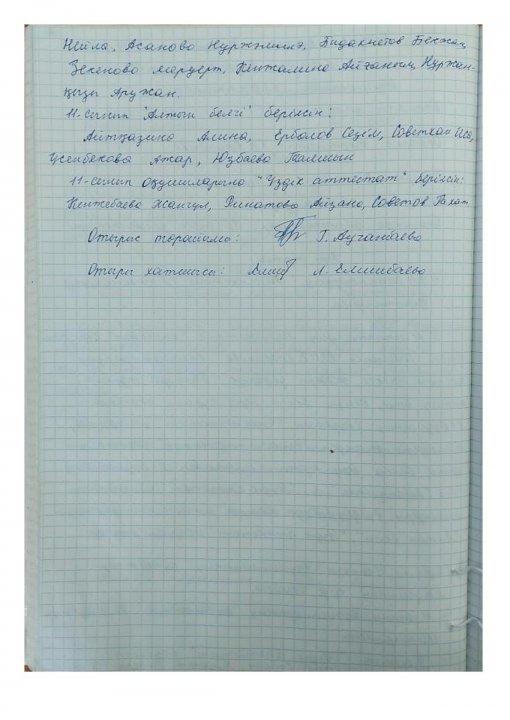 Нейла, Асанова Нуржамал, Бидахметов Бекжан
Зекенова меруерт, Кенжалина Айғаным, Нұржан-
қызы Аружан.
11-сынып "Алтын белгі" берілсін:
Айтқазина Алина, Ерболов Сезем, Советхан Иса,
Үсенбекова Ажар, Юзбаева Толшын
11-сынып оқушыларына "Үздік аттестат" берілсін:
Кенжебаева Жангүл, Ринатова Айзана, Советов Рахат
Отырыс төрайымы: Г. Ауганбаева
Отырыс хатшысы: Л. Елшибаева